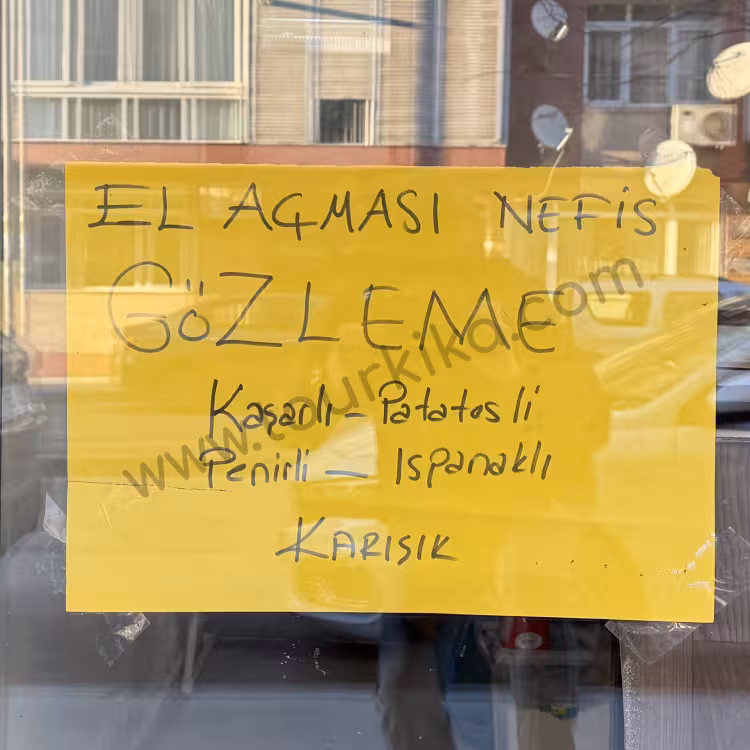 EL AÇMASI NEFİS
GÖZLEME
Kaşarlı - Patatesli
Penirli - Ispanaklı
KARIŞIK
www.tourkika.com